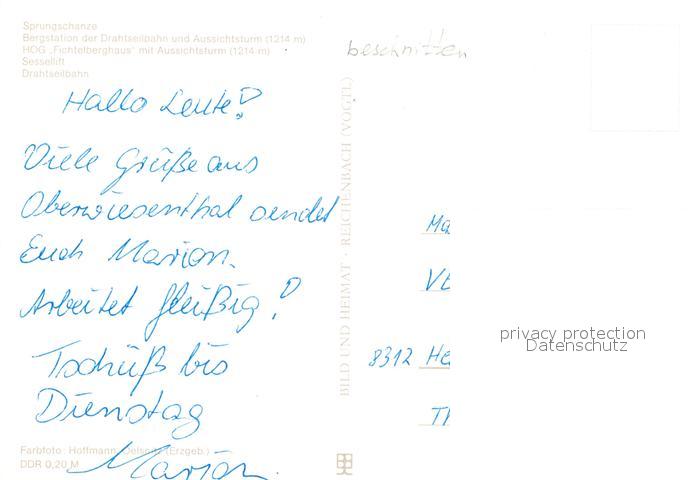 Sprungschanze
Bergstation der Drahtseilbahn und Aussichtsturm (1214 m)
HOG „Fichtelberghaus" mit Aussichtsturm (1214 m)
Sessellift
Drahtseilbahn
beschnitten
Hallo Leute!
Viele Grüße aus
Oberwiesenthal sendet
Euch Marion.
Arbeitet fleißig!
Tschüß bis
Dienstag
Marion
Farbfoto: Hoffmann, Oelsnitz (Erzgeb.)
DDR 0,20 M
BILD UND HEIMAT · REICHENBACH (VOGTL)
Ma
VE
8312 He
privacy protection
Datenschutz